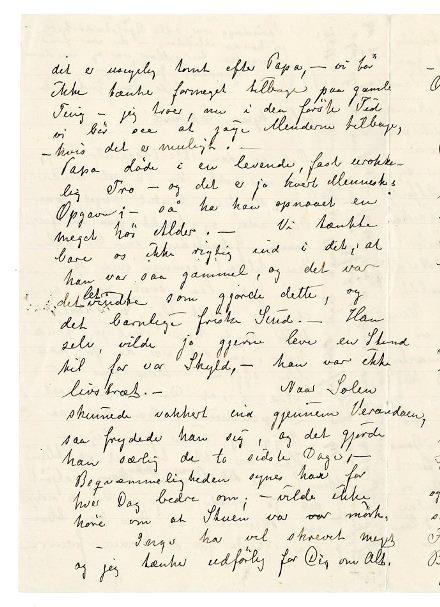 det er usigelig tomt efter Papa, – vi bør
ikke tænke formeget tilbage paa gamle
Ting – jeg troer, nu i den første Tid
vi bør see at jage Minderne tilbage,
– hvis det er muligt! –
Papa døde i en levende, fast urokke-
lig Tro – og det er jo hvert Menneskes
Opgave; – så ha han opnaaet en
meget høi Alder. – Vi tænkte
bare os ikke rigtig ind i det, at
han var saa gammel, og det var
det som gjorde dette, og
det barnlige friske Sind. – Han
selv, vilde jo gjerne leve en Stund
til for vor Skyld, – han var ikke
livstræt. – Naar Solen
skinnede vakkert ind gjennem Verandaen,
saa frydede han sig, og det gjorde
han særlig de to sidste Dage, –
Bequemmeligheden synes han for
hver Dag bedre om; – vilde ikke
høre om at Stuen var vor mørk.
– Inga ha vel skrevet meget
og jeg tænker udførlig for Dig om Alt.